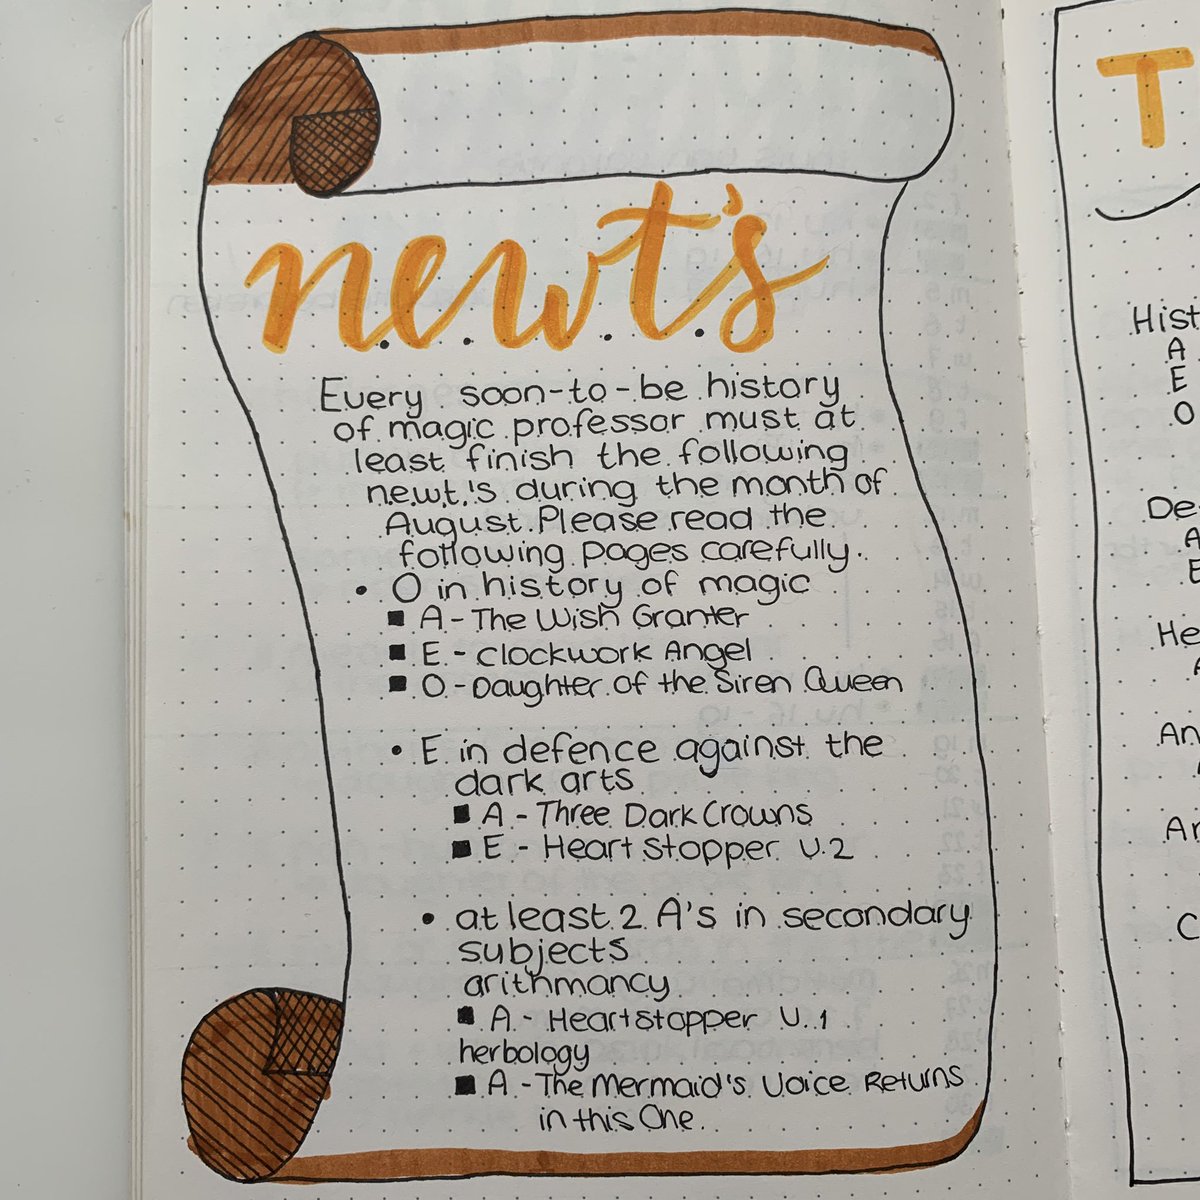 n.e.w.t.'s
Every soon-to-be history
of magic professor must at
least finish the following
n.e.w.t.'s during the month of
August. Please read the
following pages carefully.
• O in history of magic
■ A - The Wish Granter
■ E - Clockwork Angel
■ O - Daughter of the Siren Queen
• E in defence against the
dark arts
■ A - Three Dark Crowns
■ E - Heart Stopper V.2
• at least 2 A's in secondary
subjects
arithmancy
■ A - Heartstopper V.1
herbology
■ A - The Mermaid's Voice Returns
in this One
T
Hist
A
E
O
De
A
E
He
A
An
Ar
C